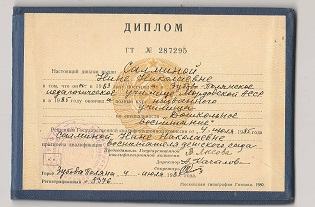 ДИПЛОМ
ГТ № 287295
Настоящий диплом выдан Салминой
Нине Николаевне
в том, что он в 1983 году поступил в Зубово-Полянское
педагогическое училище Мордовской АССР
и в 1985 году окончил
училища
"Дошкольное
воспитание"
Решением Государственной квалификационной комиссии от 4 июля 1985 года
Салминой Нине Николаевне
присвоена квалификация воспитателя детского сада
Председатель Государственной
квалификационной комиссии
Директор
Секретарь
Город Зубова Поляна 4 июля 1985
Регистрационный № 8396
Московская типография Гознака. 1980.